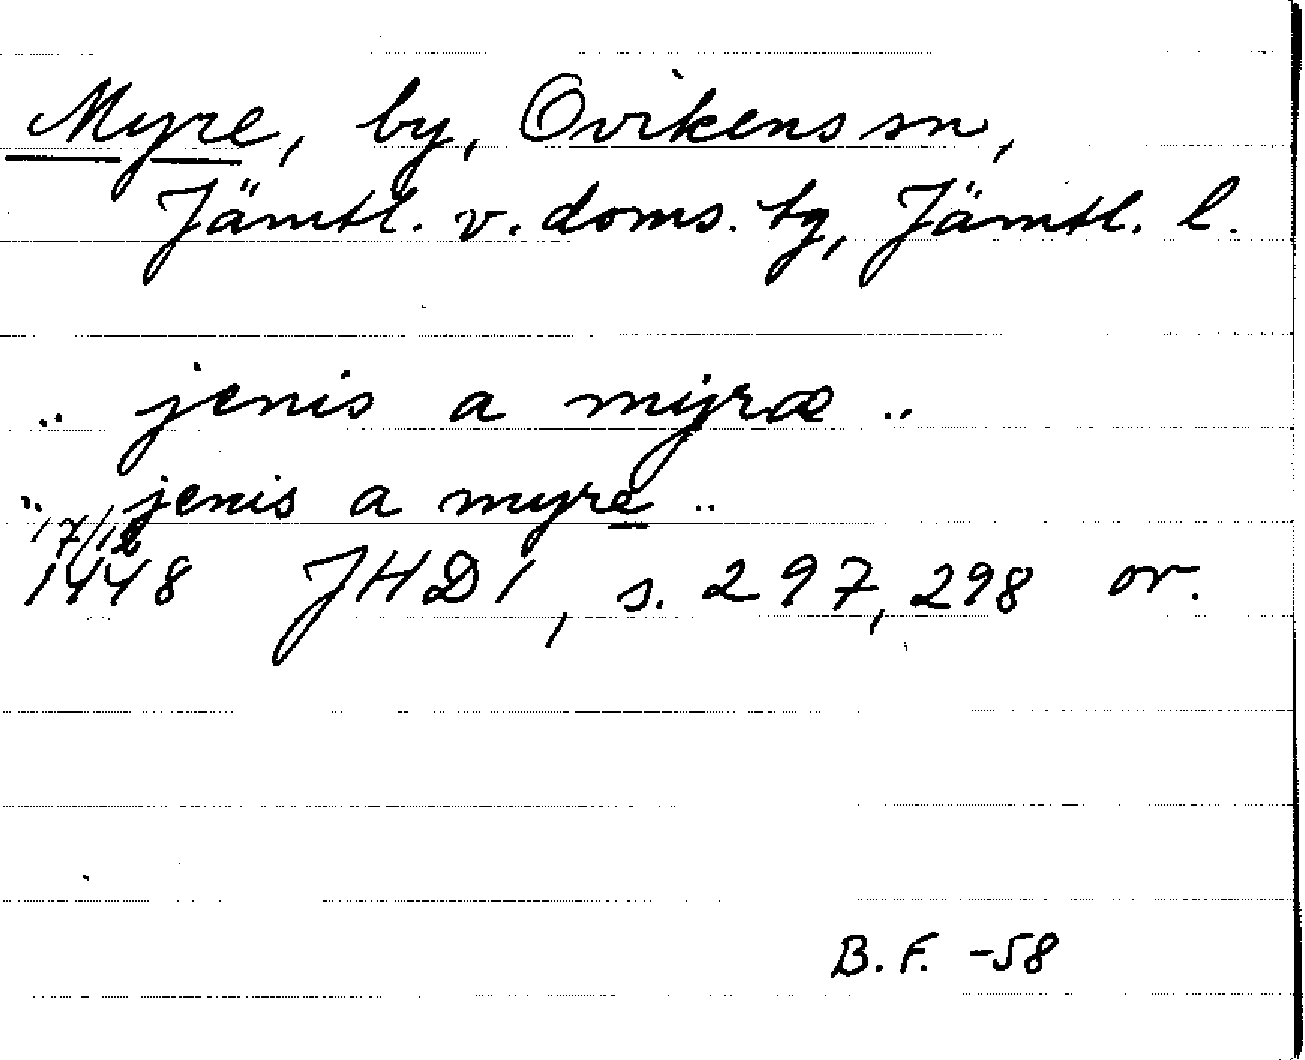 Myre, by, Ovikens sn,
Jämtl. v. doms. tg, Jämtl. l.
.. jenis a myræ ..
.. jenis a myre ..
17/12
1448 JHD 1, s. 297, 298 or.
B. F. -58